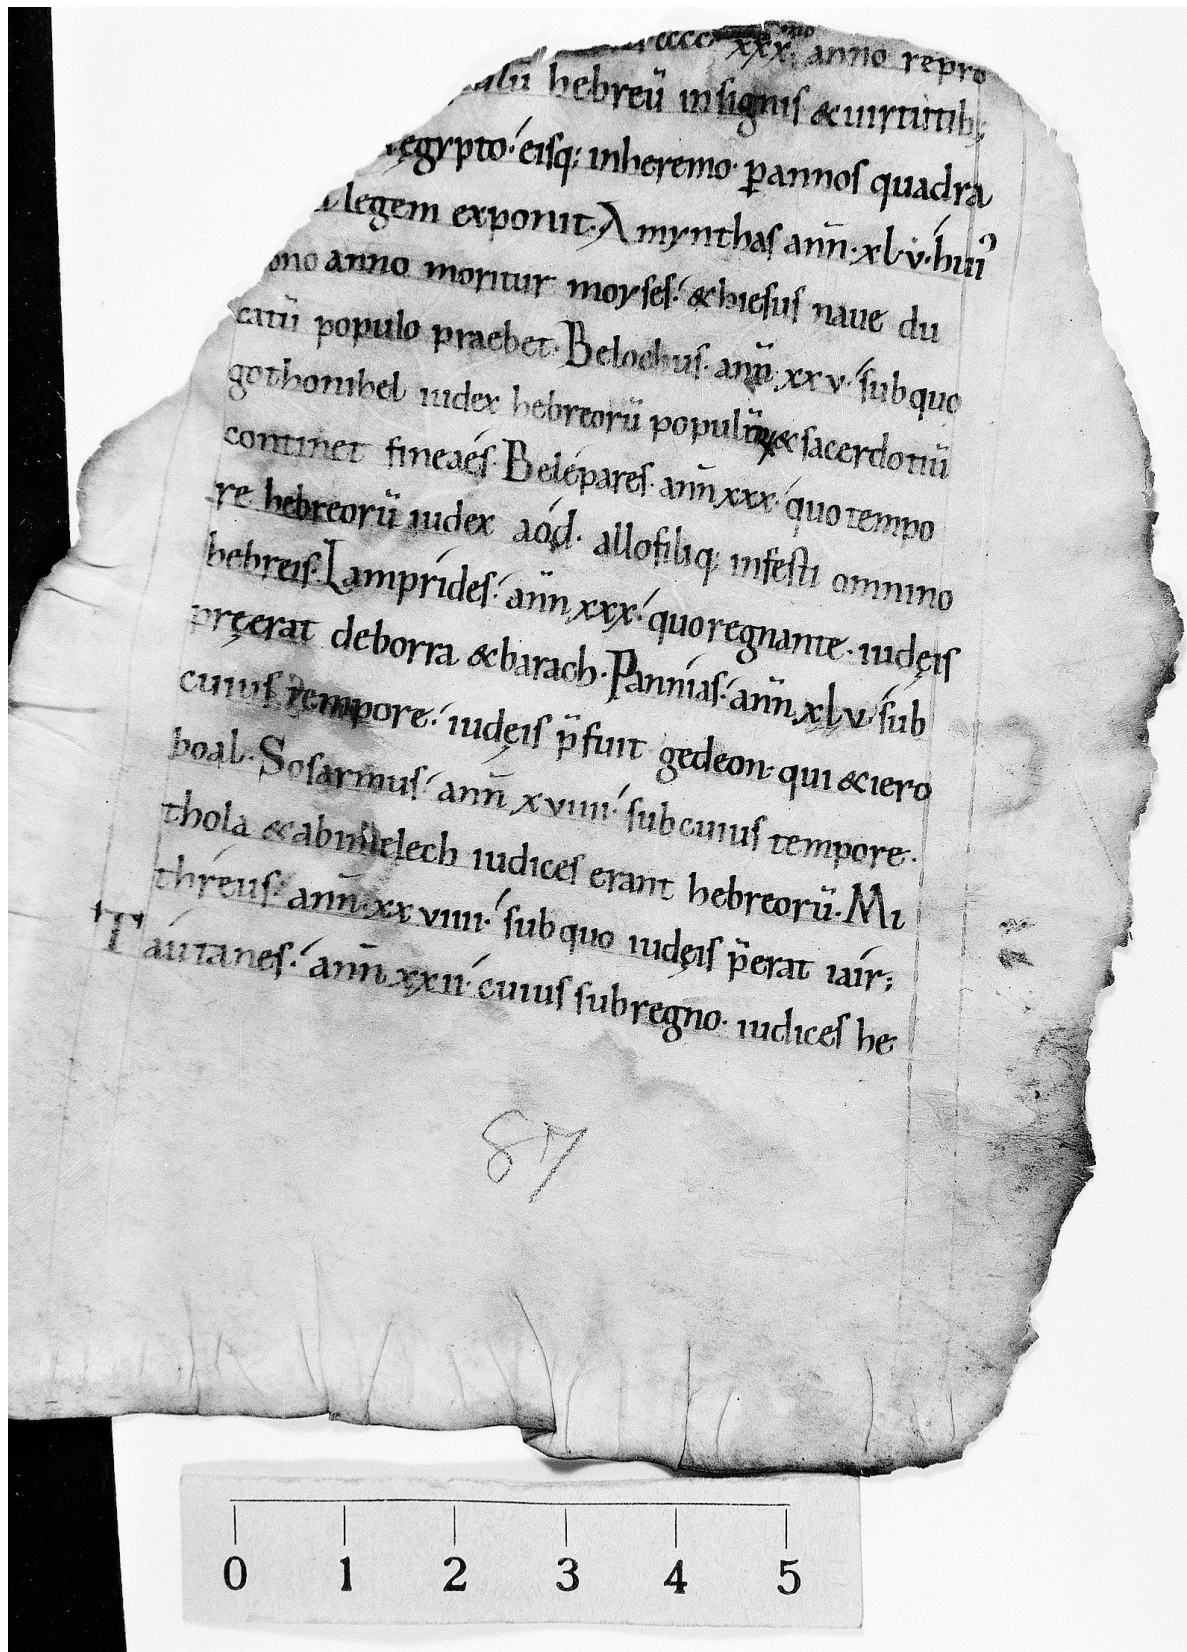 cccc xxx. anno repro
hebreū insignis & uirtutib;
egypto. eisq; inheremo. p̄annos quadra
legem exponit. Amynthas ann̄. xlv. hui᾿
ono anno moritur moyses. & hiesus naue du
catū populo praebet. Belochus. ann̄. xxv. sub quo
gothonihel iudex hebreorū populū & sacerdotiū
continet fineaés. Belépares. ann̄ xxx. quo tempo
re hebreorū iudex aód. allofiliq; infesti omnino
hebreis. Lamprídes. ann̄ xxx. quo regnante. iudęis
pręerat deborra & barach. Pannías. ann̄ xlv. sub
cuius tempore. iudęis p̄fuit gedeon. qui & iero
boal. Sosarmus. ann̄ xviiii. sub cuius tempore.
thola & abimelech iudices erant hebreorū. Mi
thréus. ann̄. xxviiii. sub quo iudęis p̄erat iaír;
Táutanes. ann̄ xxii. cuius sub regno. iudices he
87
0 1 2 3 4 5